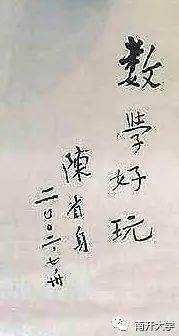 数學好玩
陳省身
二〇〇二、七
南开大学